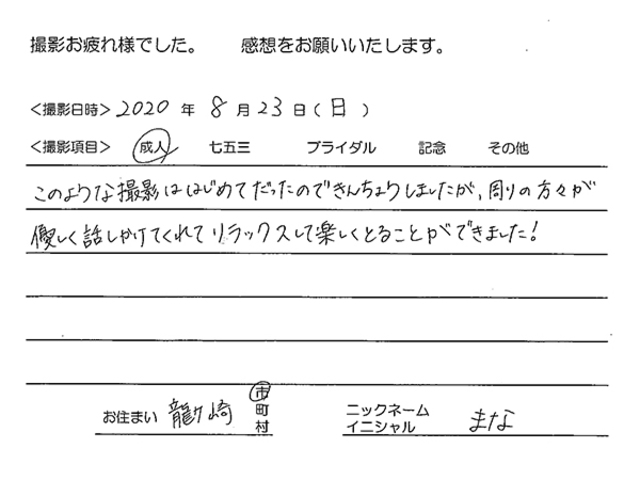 撮影お疲れ様でした。 感想をお願いいたします。
＜撮影日時＞2020 年 8 月 23 日（日）
＜撮影項目＞ 成人 七五三 ブライダル 記念 その他
このような撮影ははじめてだったのできんちょうしましたが、周りの方々が
優しく話しかけてくれてリラックスして楽しくとることができました！
お住まい 龍ヶ崎 市 町 村
ニックネーム イニシャル まな